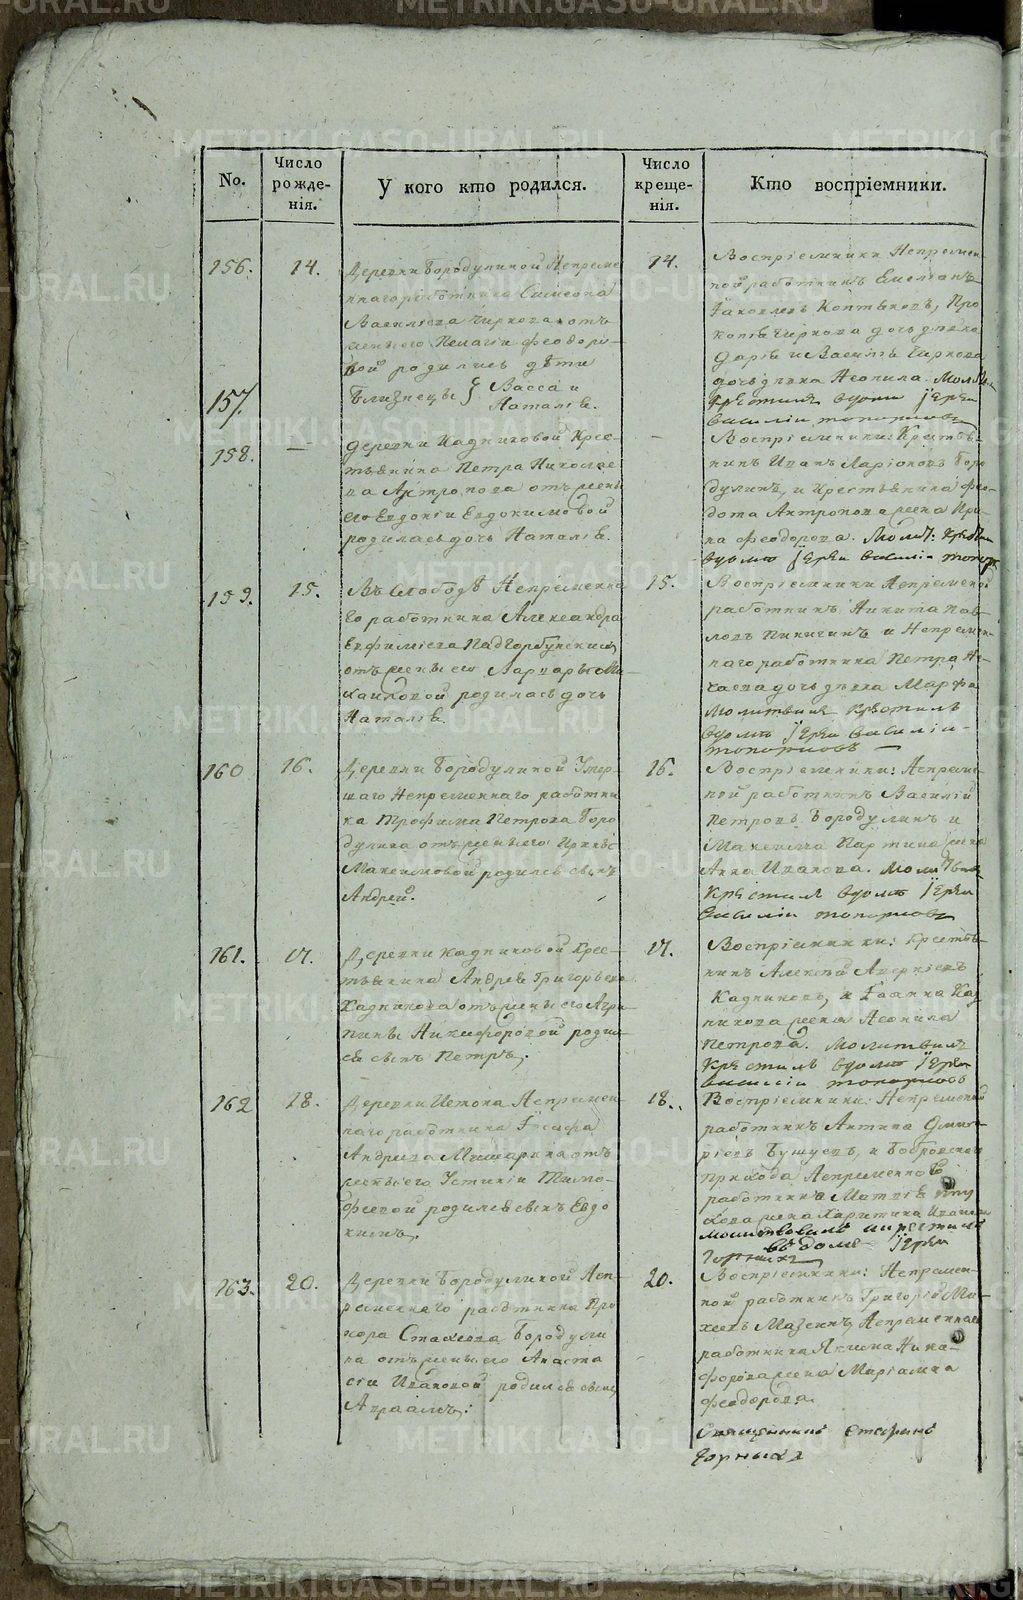 No.
Число рожде-нія.
У кого кто родился.
Число креще-нія.
Кто воспріемники.
156.
14.
Деревни Бородулиной Непреме
ннаго работника Симеона
Васильева Чиркова отъ
жены его Пелагіи Феодоро
вой родились дѣти
157.
Близнецы } Васса и
Наталія.
14.
Воспріемники Непремен
ной работникъ Емеліанъ
Іаковлевъ Коптяковъ, Про
копья Чиркова дочь дѣвка
Дарія и Василья Чиркова
дочь дѣвка Неонила. Молит
Крѣстилъ вдоми Іерей
василіи топорковъ
158.
—
деревни Кадниковой Крес-
тьянина Петра Николае
ва Антропова отъ жены
его Евдокіи Евдокимовой
родилась дочь Наталія.
—
Воспріемники: Крестья-
нинъ Иванъ Ларіоновъ Боро
дулинъ, и Крестьянина Фео-
дота Антропова жена Ири-
на Феодорова. Молит: Крѣстил
вдомѣ Іерей василіи топор
159.
15.
Въ Слободѣ Непременна
го работника Александра
Евфиміева Падгорбунских
отъ жены его Варвары Ми-
хаиловой родилась дочь
Наталія.
15.
Воспріемники Непременной
работникъ Никита Пав-
ловъ Пиничинъ и Непремен-
наго работника Петра
дочь дѣвка Марфа
молитвилъ Крѣстилъ
вдомѣ Іерей василіи
топорковъ —
160
16.
Деревни Бородулиной Умер-
шаго Непременнаго работни
ка Трофима Петрова Боро
дулина отъ жены его Ирины
Максимовой родился сынъ
Андрей.
16.
Воспріемники: Непреме-
ной работникъ Василій
Петровъ Бородулинъ и
Максима Партина жена
Анна Иванова. молитвил
Крѣстилъ вдомѣ Іерей
василіи топорковъ
161.
17.
Деревни Кадниковой Крес-
тьянина Андрея Григорьева
Кадникова отъ жены его Агри
пины Никифоровой родил
ся сынъ Петръ.
17.
Воспріемники: Крестья-
нинъ Алексѣй Аверкіевъ
Кадниковъ, и Іоанна Кад
никова жена Неонила
Петрова. молитвилъ
Крѣстилъ вдомѣ Іерей
василіи топорковъ
162
18.
Деревни Истока Непремен
наго работника Іосифа
Андреева Мишарина отъ
жены его Устиніи Тимо-
феевой родился сынъ Евдо
кимъ.
18.
Воспріемники: Непременной
работникъ Антипа Дмит-
ріевъ Бушуевъ, и Бобровскаго
прихода Непременнаго
работника Матвѣя
жена Харитина Иванова
молитвовалъ икрестилъ
въ доме Іерей
Горныхъ
163.
20.
Деревни Бородулиной Неп-
ременнаго работника Про
хора Стахеева Бородули
на отъ жены его Анаста
сіи Ивановой родился сынъ
Авраамъ.
20.
Воспріемники: Непремен-
ной работникъ Григорій Ми-
хеевъ Мазеинъ, Непременнаго
работника Якима Ники-
форова жена Маріамна
Феодорова.
Священникъ Стефанъ
Горныхъ